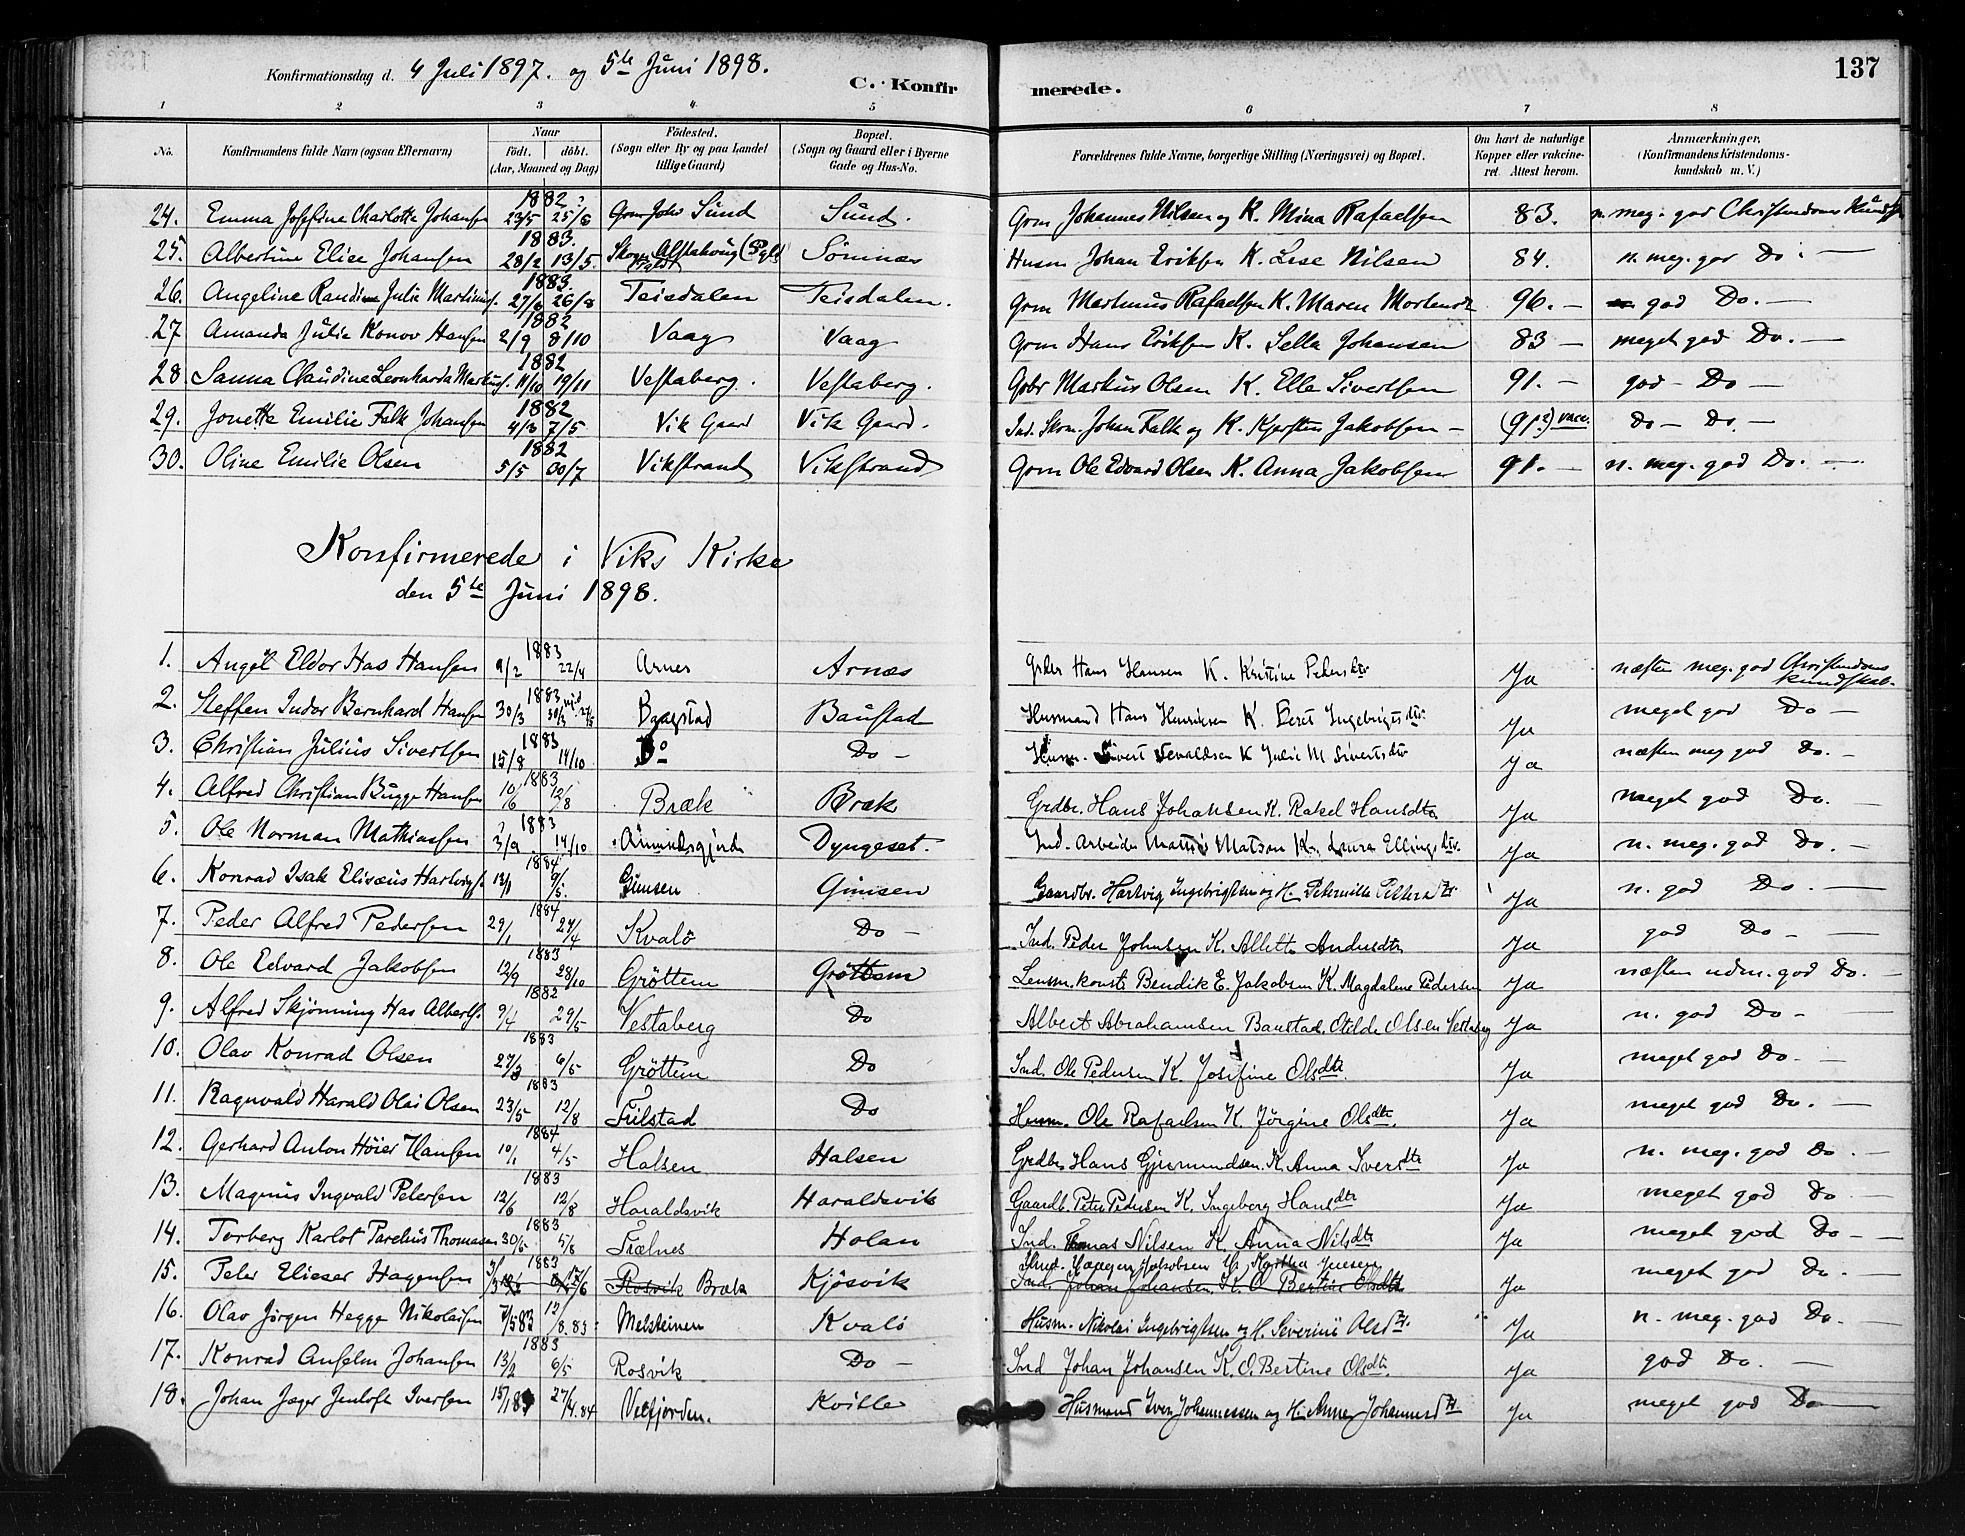 137
Konfirmationsdag d. 4 Juli 1897. og 5te Juni 1898.
C. Konfirmerede.
1 2 3 4 5 6 7 8
No. Konfirmandens fulde Navn (ogsaa Efternavn) Naar födt. döbt. (Aar, Maaned og Dag) Födested. (Sogn eller By og paa Landet tillige Gaard) Bopæl. (Sogn og Gaard eller i Byerne Gade og Hus-No. Forældrenes fulde Navne, borgerlige Stilling (Næringsvei) og Bopæl. Om havt de naturlige Kopper eller vakcineret. Attest herom. Anmærkninger. (Konfirmandens Kristendomskundskab m. V.)
24. Emma Josefine Charlotte Johansen 1882 23/5 25/8 Sund Sund. Grm Johannes Nilsen og K. Mina Rafaelsen 83. n. meg. god Christendoms Kundsk
25. Albertine Elise Johansen 1883. 28/2 13/5. Alstahoug Sömnæs Husm Johan Eriksen K. Lise Nilsen 84. n. meg. god Do. —
26. Angeline Randine Julie Martinus. 1883. 27/6 26/8 Teisdalen Teisdalen. Grm Martinus Rafaelsen K. Maren Mortensd 96. — god Do. —
27 Amanda Julie Konov Hansen 1882 2/9 8/10 Vaag Vaag Grm Hans Eriksen K. Sella Johansen 83 — meget god Do. —
28. Sanna Claudine Leonharda Markus. 1882 11/10 19/11 Vestaberg. Vestaberg. Gbr Markus Olsen K. Elle Sivertsen 91. — god — Do —
29. Jonette Emilie Falk Johansen 1882 4/3 7/5 Vik Gaard Vik Gaard. Ind. Skom. Johan Falk og K. Kjersten Jakobsen — (91?) vacc. Do — Do. —
30. Oline Emilie Olsen 1882 5/5 30/7 Vikstrand Vikstrand Grm Ole Edvard Olsen K. Anna Jakobsen 91. — n. meg. god Do. —
Konfirmerede i Viks Kirke
den 5te Juni 1898.
1. Angel Eldor Has Hansen 1883 9/2 22/4 Arnes Arnæs Grdbr Hans Hansen K. Kristine Pedersdtr. Ja næsten meg. god Christendoms kundskab.
2. Steffen Indor Bernhard Hansen 1883 30/3 Baagstad Baustad Husmand Hans Henriksen K. Beret Ingebrigtsdtr. Ja meget god Do —
3. Christian Julius Sivertsen 1883 15/8 14/10 Do Do — Husm. Sivert Sevaldsen K Julie M Sivertsdtr Ja næsten meg god Do. —
4. Alfred Christian Bugge Hansen 1883 10/6 12/8 Bræk Bræk Grdbr. Hans Johansen K. Rakel Hansdtr Ja meget god Do. —
5. Ole Norman Mathiassen 1883 3/9 14/10 Dyngeset. Ind. Arbeider Mattis Matson K. Laura Ellingsdtr. Ja n. meg. god Do. —
6. Konrad Isak Elisæus Hartvigs. 1884 13/1 9/5. Gimsen Gimsen Gaardbr. Hartvig Ingebrigtsen og H. Petermille Petersdtr. Ja n. god Do. —
7. Peder Alfred Pedersen 1884 29/1 27/4 Kvalö Do — Ind. Peder Johnsen K. Allette Andersdtr Ja god Do — —
8. Ole Edvard Jakobsen 1883 12/9 28/10 Gröttem Gröttem Lensm. konst. Bendik E. Jakobsen K. Magdalene Pedersen Ja næsten udm. god Do. —
9. Alfred Skjönning Has Alberts. 1882 9/4 29/5 Vestaberg Do Albert Abrahamsen Baustad. Otilde Olsen Vestaberg Ja n. god Do —
10. Olav Konrad Olsen 1883 27/3 6/5 Gröttem Do Ind. Ole Pedersen K. Josefine Olsdtr. Ja meget god Do. —
11. Ragnvald Harald Olai Olsen 1883 23/5 12/8 Fulstad Do Husm. Ole Rafaelsen K. Jörgine Olsdtr. Ja meget god Do. —
12. Gerhard Anton Höier Hansen 1884 10/1 4/5 Halsen Halsen Grdbr. Hans Gjermundsen K. Anna Iversdtr Ja n. meg. god Do. —
13. Magnus Ingvald Petersen 1883 12/6 12/8 Haraldsvik Haraldsvik Gaardb. Peter Pedersen K. Ingeborg Hansdtr Ja meget god Do —
14. Torberg Karlot Parelius Thomasen 1883 30/5 5/8 Trælnes Holan Ind. Tomas Nilsen K. Anna Nilsdtr Ja meget god Do — —
15. Peter Elieser Hagensen 1883 Rosvik Bræk Kjösvik Ind. Haagen Jakobsen H. Martha Jensen Ind. Johan Johansen K. O Bertine Olsdtr Ja meget god Do. —
16. Olav Jörgen Hegge Nikolaisen 7/5 83 12/8.83 Melsteinen Kvalö Husm. Nikolai Ingebrigtsen og H. Severine Olsdtr. Ja n. meg. god Do. —
17. Konrad Anselm Johansen 1883 13/2 6/5 Rosvik Do — Ind Johan Johansen K. O. Bertine Olsdtr. Ja god Do. —
18. Johan Jæger Jentoft Iversen 27/4.84 Velfjorden. Kville Husmand Iver Johannessen og H. Anne Johannesdtr. Ja meget god Do —